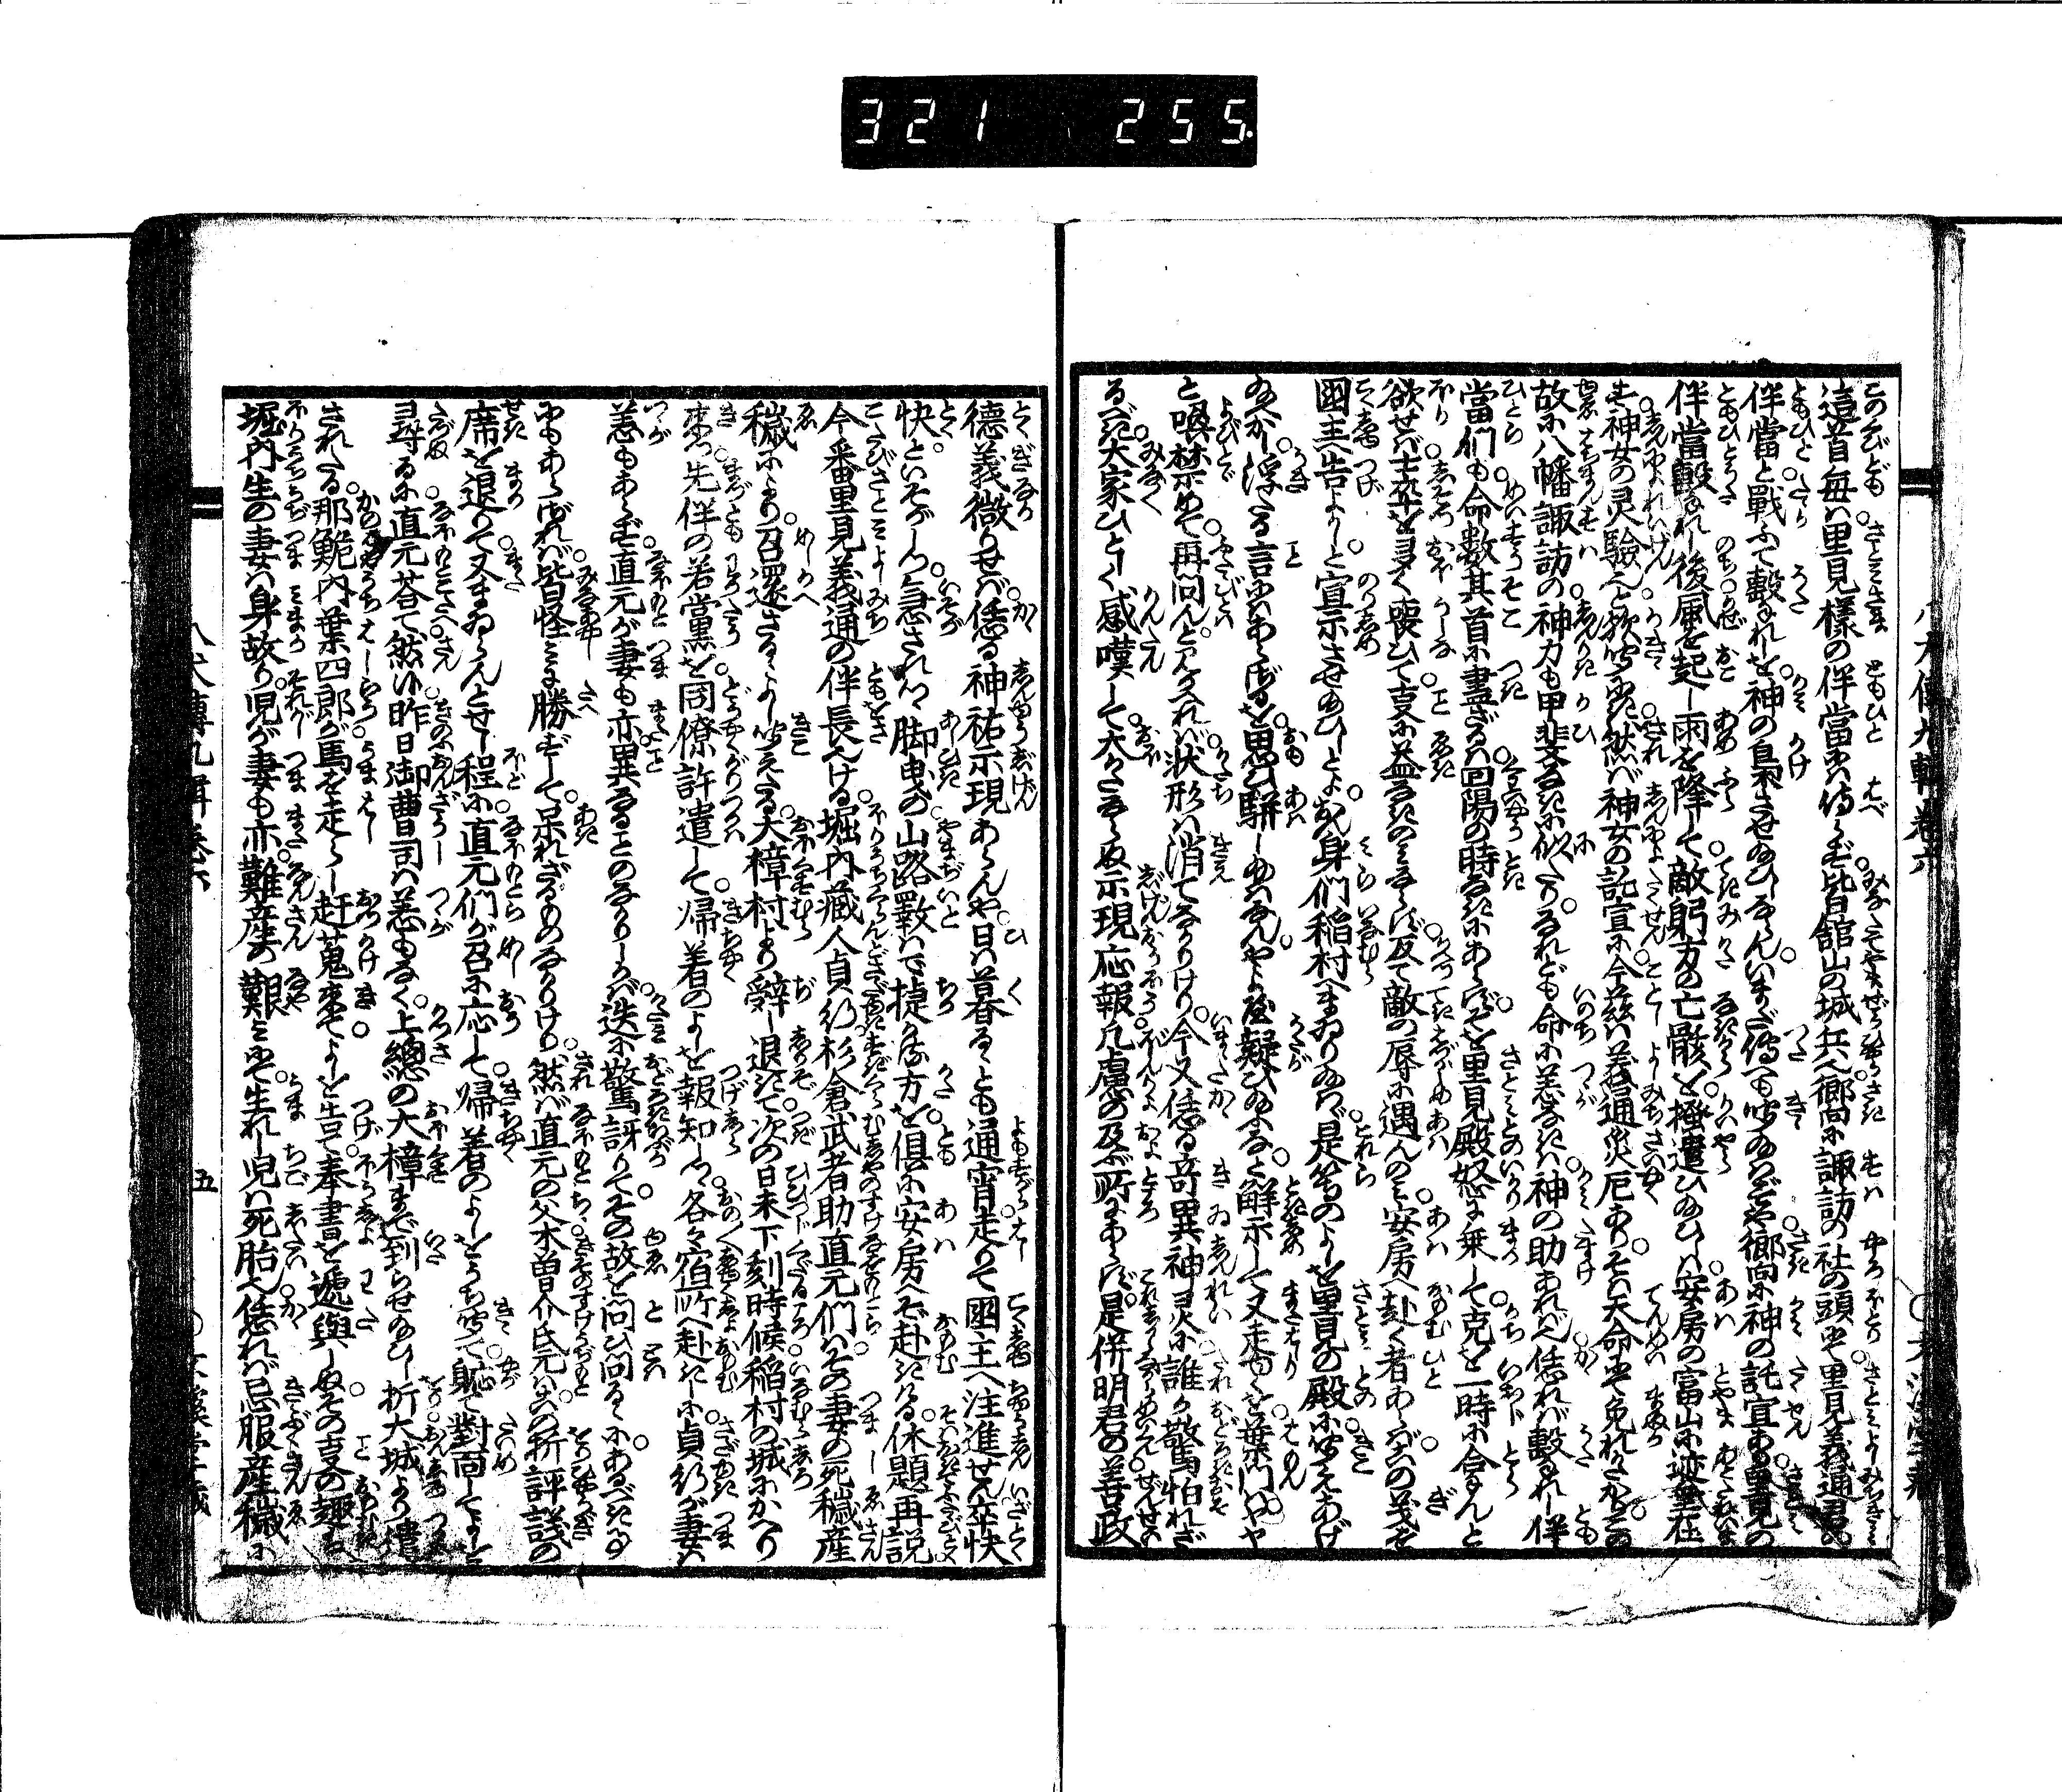 321 255.
這首毎ハ里見様の伴當にハ侍らず皆舘山の城兵也郷向に諏訪の社の頭にて里見義通君の
伴當と戰ふて敺れしを神の梟させ給ひしならんいまだ傳へも聞給はずや郷向に神の託宣あり里見の
伴當敺れし後風を起し雨を降して敵躬方の亡骸を掻遣ひ給ひしハ安房の富山に迹埀在
す神女の灵驗也と聞にき然ば神女の託宣に今茲ハ義通災厄ありそハ天命にて免れかたかり
故に八幡諏訪の神力も甲斐なきに似たりなれども命に恙なきハ神の助あれバ也恁れバ敺れし伴
當們も命数其首に盡ざるハ回陽の時なきにあらずを里見殿怒に乗して克を一時に合んと
欲せバ士卒を多く喪ひて支に益なきのミならず反て敵の辱に遇んのミ安房へ赴く者あらバこの義を
國主へ告よかしと宣示させ給ひしとよ身們稲村へまゐり給ハヾ是等のよしを里見の殿に聞えあげ
給へかし浮たる言にハあらざるを思ひ駢し給ハなんやよ疑ひ給ふなと觧示して又走るを葉門ハやや
と喚禁めて再問んとしつれバ状形ハ消てなかりけり今又恁る竒異神灵に誰か驚き怕れざ
るべき大家ひとしく感嘆して大かたならぬ示現応報凡慮の及ぶ所にあらず是併明君の善政
德義微りせバ恁る神祐示現あらんや日ハ暮るゝとも通宵走りて國主へ注進せん卒快
快といそがしつ急されつ脚曳の山路敷いで捷かる方を倶に安房へぞ赴きける休題再説
今番里見義通の伴長也ける堀内藏人貞行杉倉武者助直元們ハその妻の死穢産
穢により召還さるゝよし聞えたる大樟村より辭し退きて次の日未下刻時候稲村の城にかへり
来つ先伴の若黨を同僚許遣して帰着のよしを報知しつ各々宿所へ赴きしに貞行が妻ハ
恙もあらず直元が妻も亦異なることのなかりしかバ迭に驚訝りてその故を問ひ問るゝにあるべき事
にもあらざれバ皆怪ミに勝ずして呆れざるものなかりけり然ば直元の父木曽介氏元ハこの折評議の
席を退りて又まゐらんとせし程に直元們が召に応して帰着のよしをうち聞て軈て對面してよしを
尋るに直元荅て然ハ昨日御曹司ハ恙もなく上總の大樟まで到らせ給ひし折大城より遣
されたる那鯇内葉四郎が馬を走らし赶蒐来てよしを告て奉書を逓與しぬその支の趣ハ
堀内生の妻ハ身故り児が妻も亦難産の艱ミにて生れし児ハ死胎也恁れバ忌服産穢に
八犬傳九輯巻六
五